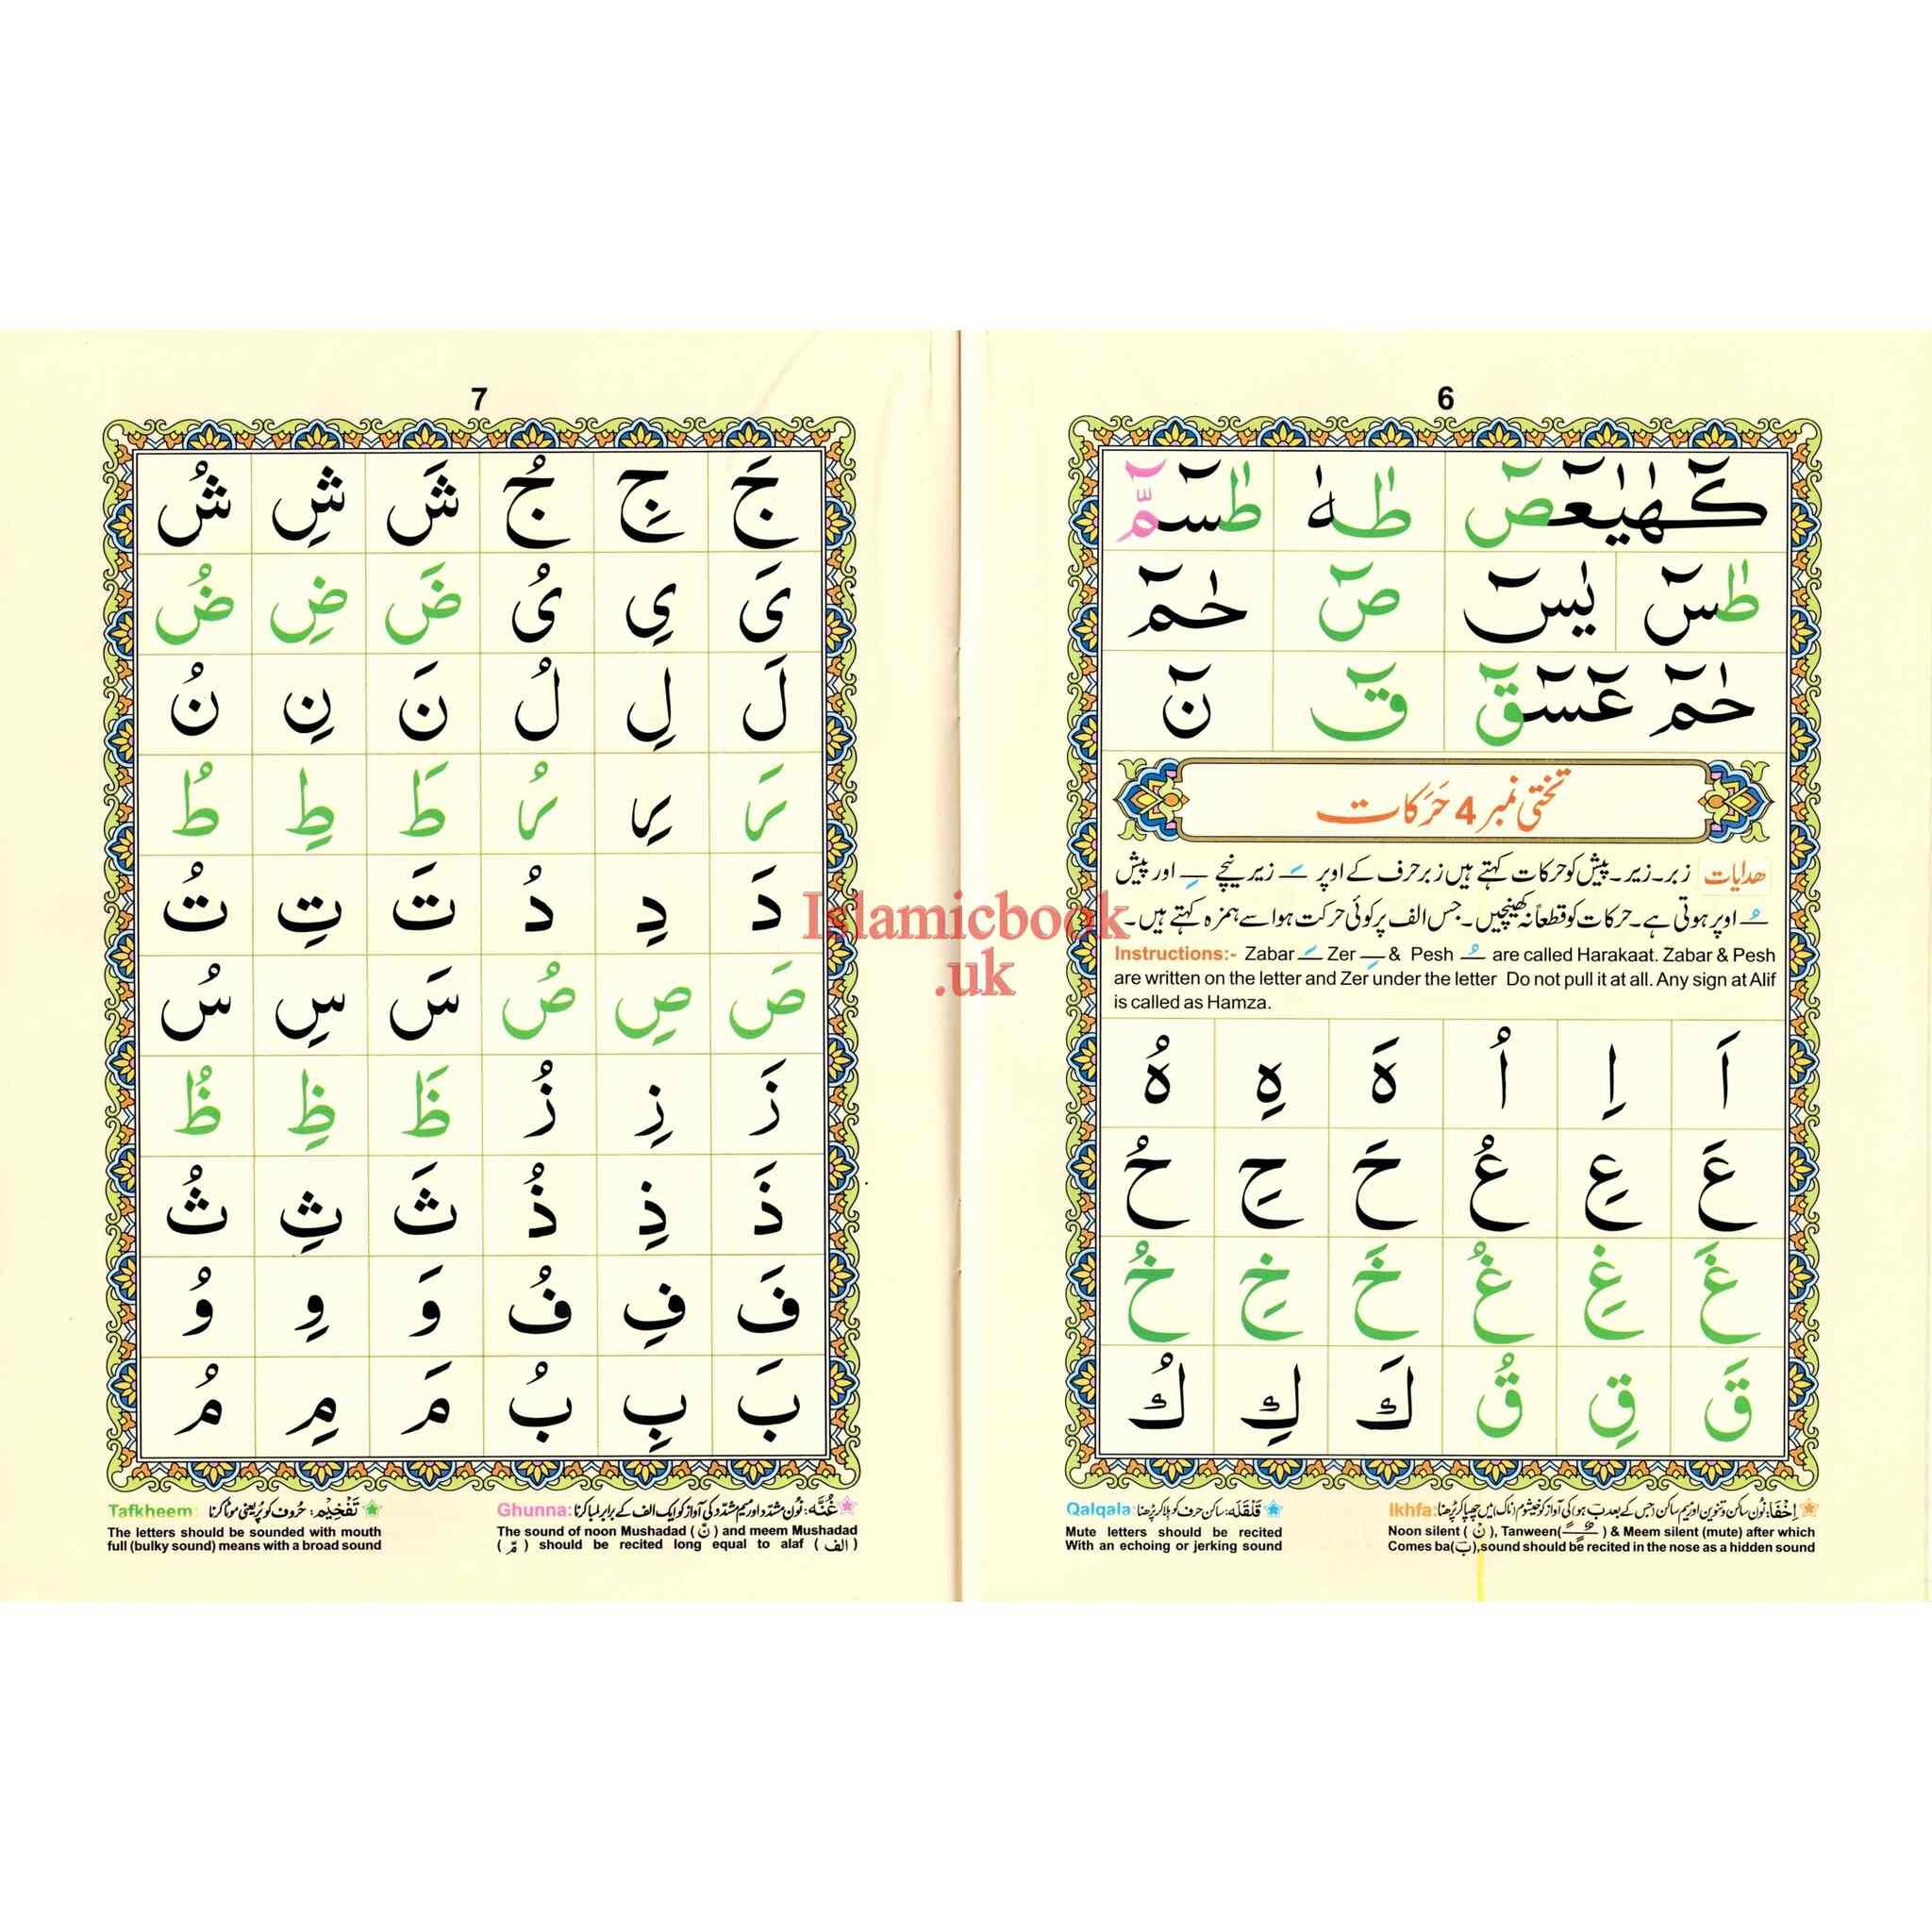 6
كٓهٰيٰعٓصٓ طٰهٰ طٰسٓمّٓ
طٰسٓ يٰسٓ صٓ حٰمٓ
حٰمٓ عٓسٓقٓ قٓ نٓ
تختی نمبر 4 حَرَکات
ھدایات زبر۔زیر۔پیش کو حرکات کہتے ہیں زبر حرف کے اوپر ـَ زیر نیچے ـِ اور پیش
ـُ اوپر ہوتی ہے۔حرکات کو قطعاً نہ کھینچیں۔جس الف پر کوئی حرکت ہو اسے ہمزہ کہتے ہیں۔
Instructions:- Zabar ـَ Zer ـِ & Pesh ـُ are called Harakaat. Zabar & Pesh
are written on the letter and Zer under the letter Do not pull it at all. Any sign at Alif
is called as Hamza.
اَ اِ اُ هَ هِ هُ
عَ عِ عُ حَ حِ حُ
غَ غِ غُ خَ خِ خُ
قَ قِ قُ كَ كِ كُ
Ikhfa: اِخْفَا: نُون ساکن و تنوین اور میم ساکن (جس کے بعد ب ہو) کی آواز کو خیشوم (ناک) میں چھپا کر پڑھنا
Noon silent ( نْ ), Tanween( ـًـٍـٌ ) & Meem silent (mute) after which
Comes ba(بَ),sound should be recited in the nose as a hidden sound
Qalqala: قَلْقَلَه: ساکن حرف کو ہلا کر پڑھنا
Mute letters should be recited
With an echoing or jerking sound
7
جَ جِ جُ شَ شِ شُ
یَ یِ یُ ضَ ضِ ضُ
لَ لِ لُ نَ نِ نُ
رَ رِ رُ طَ طِ طُ
دَ دِ دُ تَ تِ تُ
صَ صِ صُ سَ سِ سُ
زَ زِ زُ ظَ ظِ ظُ
ذَ ذِ ذُ ثَ ثِ ثُ
فَ فِ فُ وَ وِ وُ
بَ بِ بُ مَ مِ مُ
Ghunna: غُنَّه: نُون مشدّد اور میم مشدّد کی آواز کو ایک الف کے برابر لمبا کرنا
The sound of noon Mushadad ( نّ ) and meem Mushadad
( مّ ) should be recited long equal to alaf ( الف )
Tafkheem: تَفْخِيْم: حُروف کو پُر یعنی موٹا کرنا
The letters should be sounded with mouth
full (bulky sound) means with a broad sound
Islamicbook
.uk